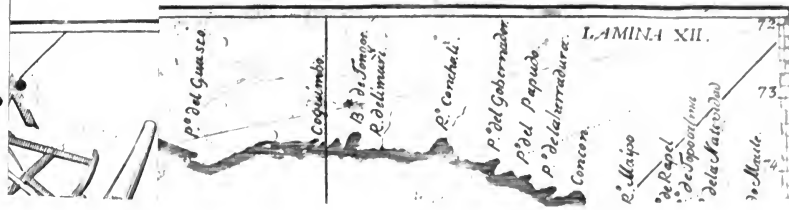 LAMINA XII.
72
73
P.º del Guasco.
Coquimbo.
B.ª de Tongoi.
R. de limari.
R.º Conchali.
P.º del Gobernador.
P.º del Papudo.
P.º de la herradura.
Concon.
R.º Maipo
º de Rapel
º de Topocalma
de la Natividad
de Maule.